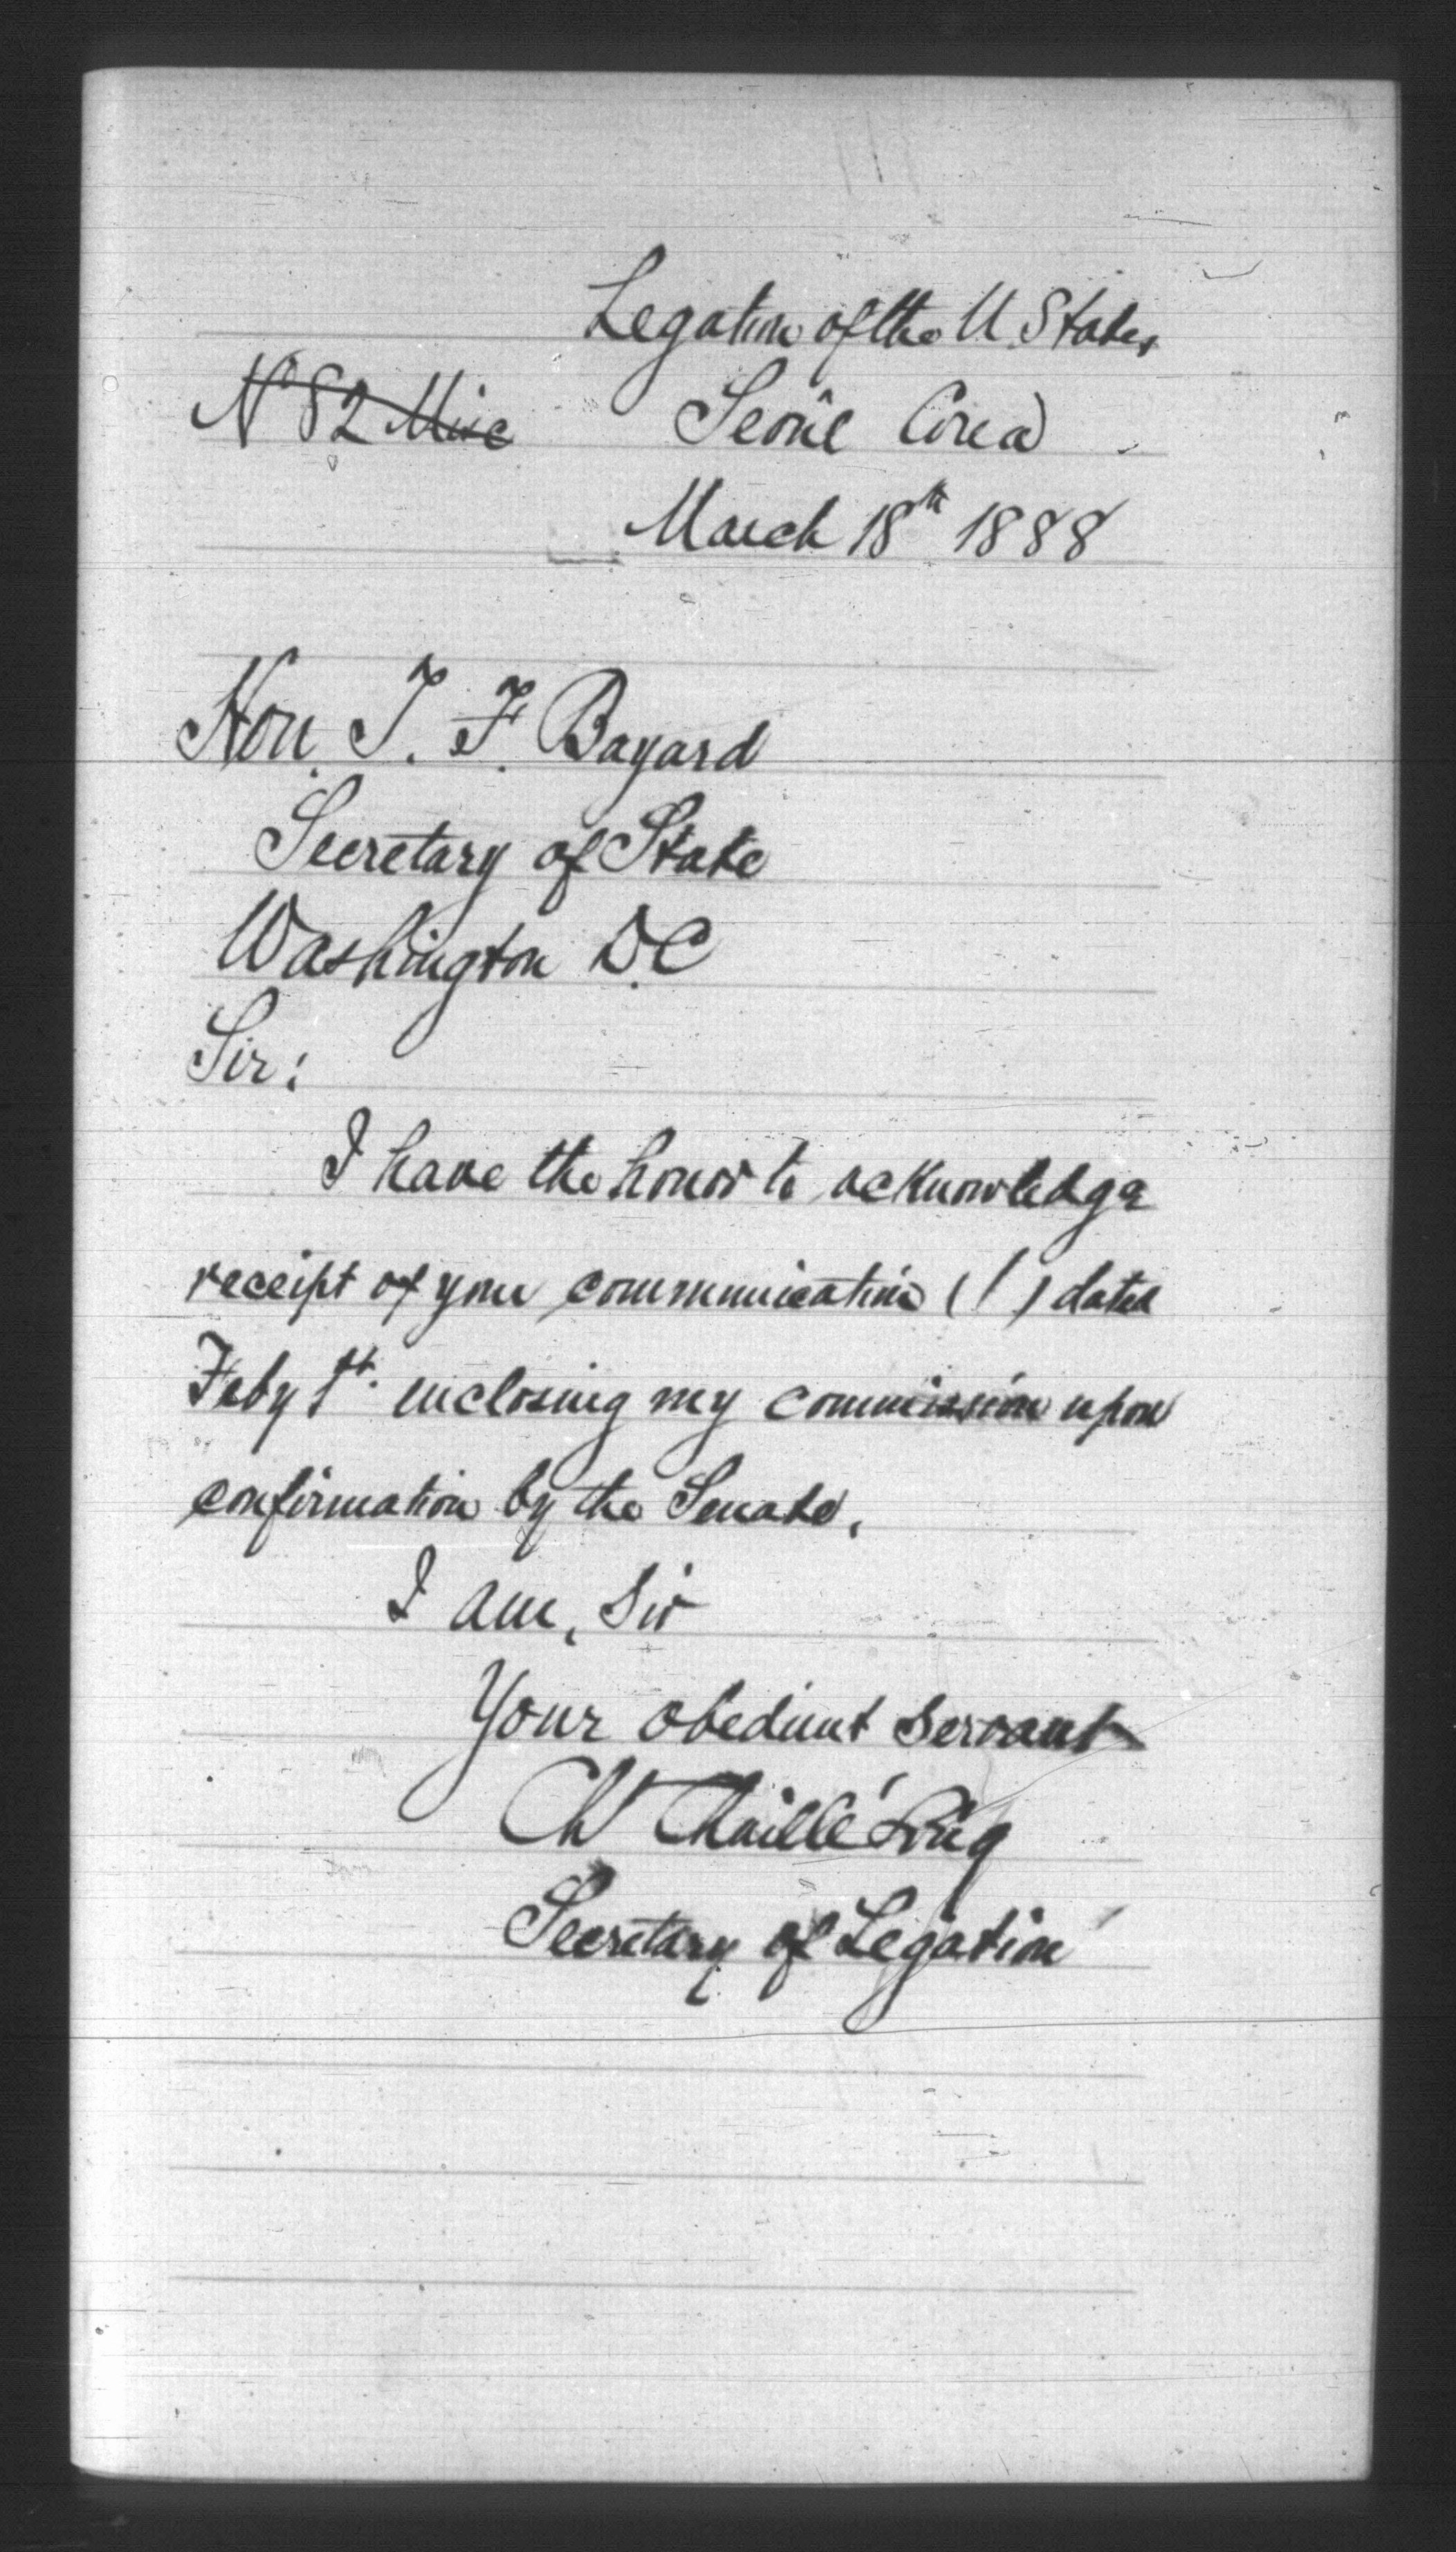 Legation of the U. States
Nº 82 Misc
Seoûl Corea
March 18th 1888
Hon. T. F. Bayard
Secretary of State
Washington D.C
Sir:
I have the honor to acknowledge
receipt of your communication (1) dated
Feby 1st. enclosing my commission upon
confirmation by the Senate.
I am, Sir
Your obedient servant
Ch Chaillé Long
Secretary of Legation